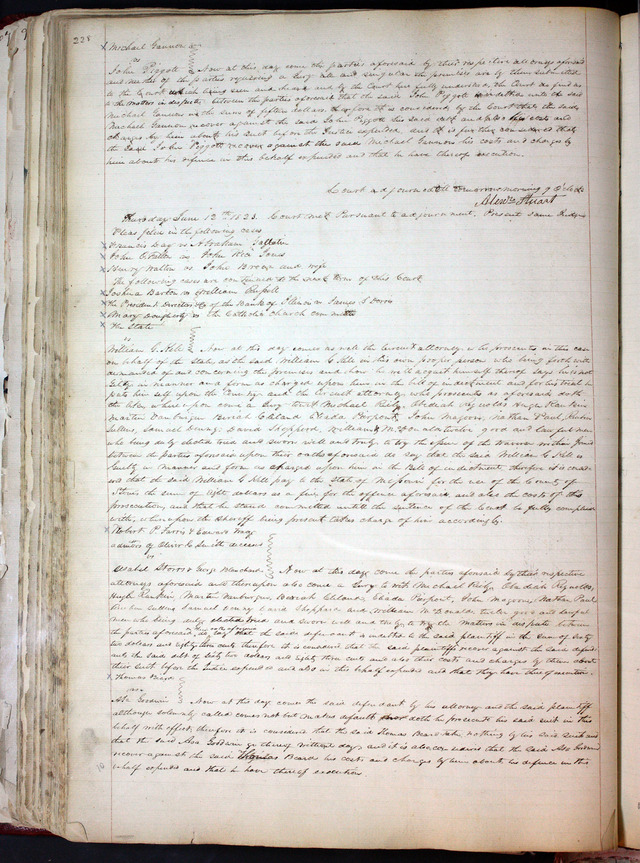 228
Michael Gannon
vs
John Piggott Now at this day come the parties aforesaid by their respective attorneys aforesaid
and neither of the parties requiring a Jury all and singular the premises are by them submitted
to the Court which being seen and heard and by the Court here fully understood the Court do find as
to the matters in dispute between the parties aforesaid that the said John Piggott is indebted unto the said
Michael Gannon in the sum of fifteen dollars therefore it is considered by the Court that the said
Michael Gannon recover against the said John Piggott his said debt and also his costs and
charges by him about his suit before the Justice expended and it is further considered that
the said John Piggott recover against the said Michael Gannon his costs and charges by
him about his defence in this behalf expended and that he have thereof execution
Court adjourned till tomorrow morning 9 Oclock
Alexr. Stuart
Thursday June 12th 1823. Court met Pursuant to adjournment. Present same Judge
Pleas filed in the following cases
Francis Day vs Abraham Gallatin
John vs John Rice Jones
Henry Walton vs John Brown and wife
The following cases are continued to the next term of this Court
Joshua Barton vs William Russell
The President Directors &c of the Bank of Illinois vs James
Mary Dougherty vs the Catholic Church
The State
vs
William C. Hill Now at this day comes as well the Circuit attorney who prosecutes in this case
on behalf of the State as the said William C Hill in his own proper person who being forthwith
demanded of and concerning the premises and how he will acquit himself thereof says he is not
Guilty in manner and form as charged upon him in the bill of indictment and for his trial he
puts himself upon the Country and the Circuit attorney who prosecutes as aforesaid doth
the like, whereupon come a Jury to wit Michael Obadiah Reynolds Hugh Rankin
Martin Josiah Cleland Elisha John Magoone, Nathan Paul,
Samuel David Sheppard, William McDonald good and lawful men
who being duly elected tried and sworn well and truly to try the issue of the traverse within Joined
between the parties aforesaid upon their oaths aforesaid do say that the said William C Hill is
Guilty in manner and form as charged upon him in the bill of indictment, therefore it is consid
ered that the said William C Hill pay to the State of Missouri for the use of the County of
St Louis the sum of Eight dollars as a fine, for the offence aforesaid and also the costs of this
prosecution, and that he stand committed until the sentence of the Court be fully complied
with, whereupon the Sheriff being present takes charge of him accordingly.
Robert P. Farris & Edward
admrs of Oliver C Smith deceased
vs
Storrs & George Blanchard Now at this day come the parties aforesaid by their respective
attorneys aforesaid and thereupon also come a Jury to wit Michael Obadiah Reynolds,
Hugh Rankin, Martin Josiah Cleland, Elisha John Magoone, Nathan Paul
Samuel David Sheppard and William McDonald good and lawful
men who being duly elected tried and sworn well and truly to try the matters in dispute between
the parties aforesaid, do say that the said defendant is indebted to the said plaintiff in the sum of sixty
two dollars and eighty three cents therefore it is considered that the said plaintiffs recover against the said defend
ants the said debt of sixty two dollars and eighty three cents and also their costs and charges by them about
their suit before the Justice expended and also in this behalf expended and that they have thereof execution
Thomas Beard
vs
Asa Now at this day comes the said defendant by his attorney and the said plaintiff
although solemnly called comes not but makes default nor doth he prosecute his said suit in this
behalf with effect, therefore it is considered that the said Thomas Beard take nothing by his said suit and
that the said Asa go thereof without day and it is also considered that the said Asa
recover against the said Thomas Beard his costs and charges by him about his defence in this
behalf expended and that he have thereof execution